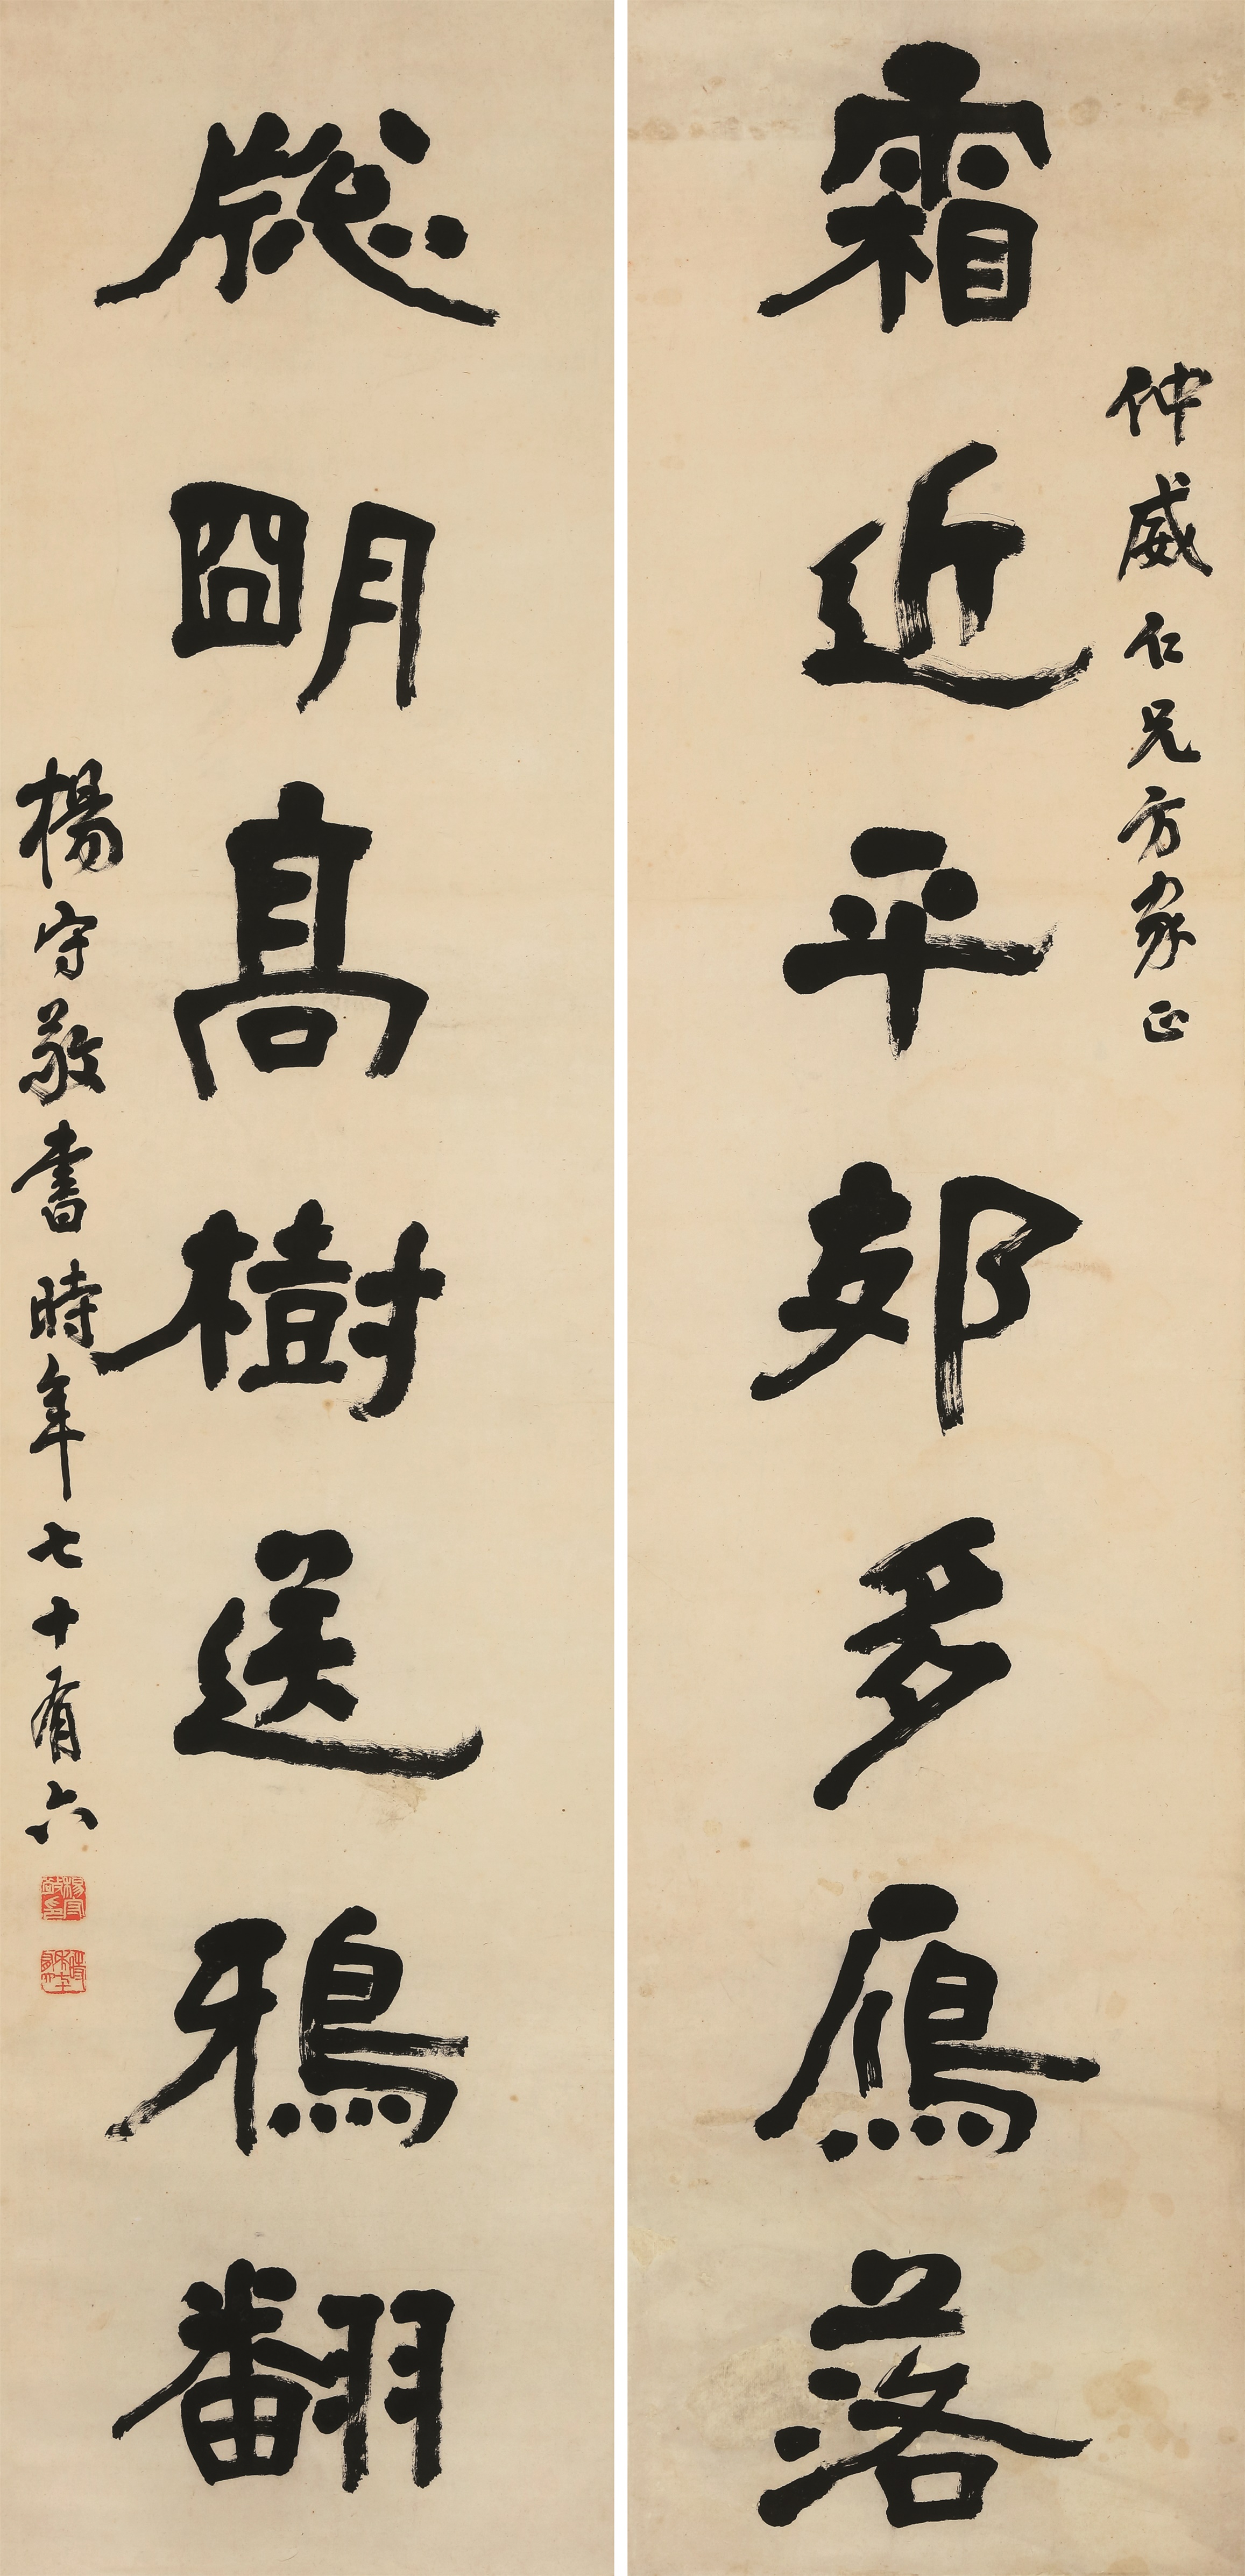 仲威仁兄方家正
霜近平郊多鴈落
牕朙高樹送鴉翻
楊守敬書時年七十有六
楊守敬印